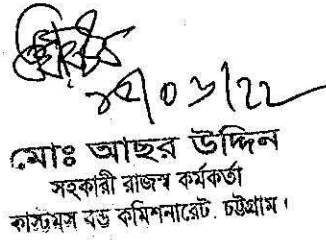 মোঃ আছর উদ্দিন
সহকারী রাজস্ব কর্মকর্তা
কাস্টমস বন্ড কমিশনারেট. চট্টগ্রাম।